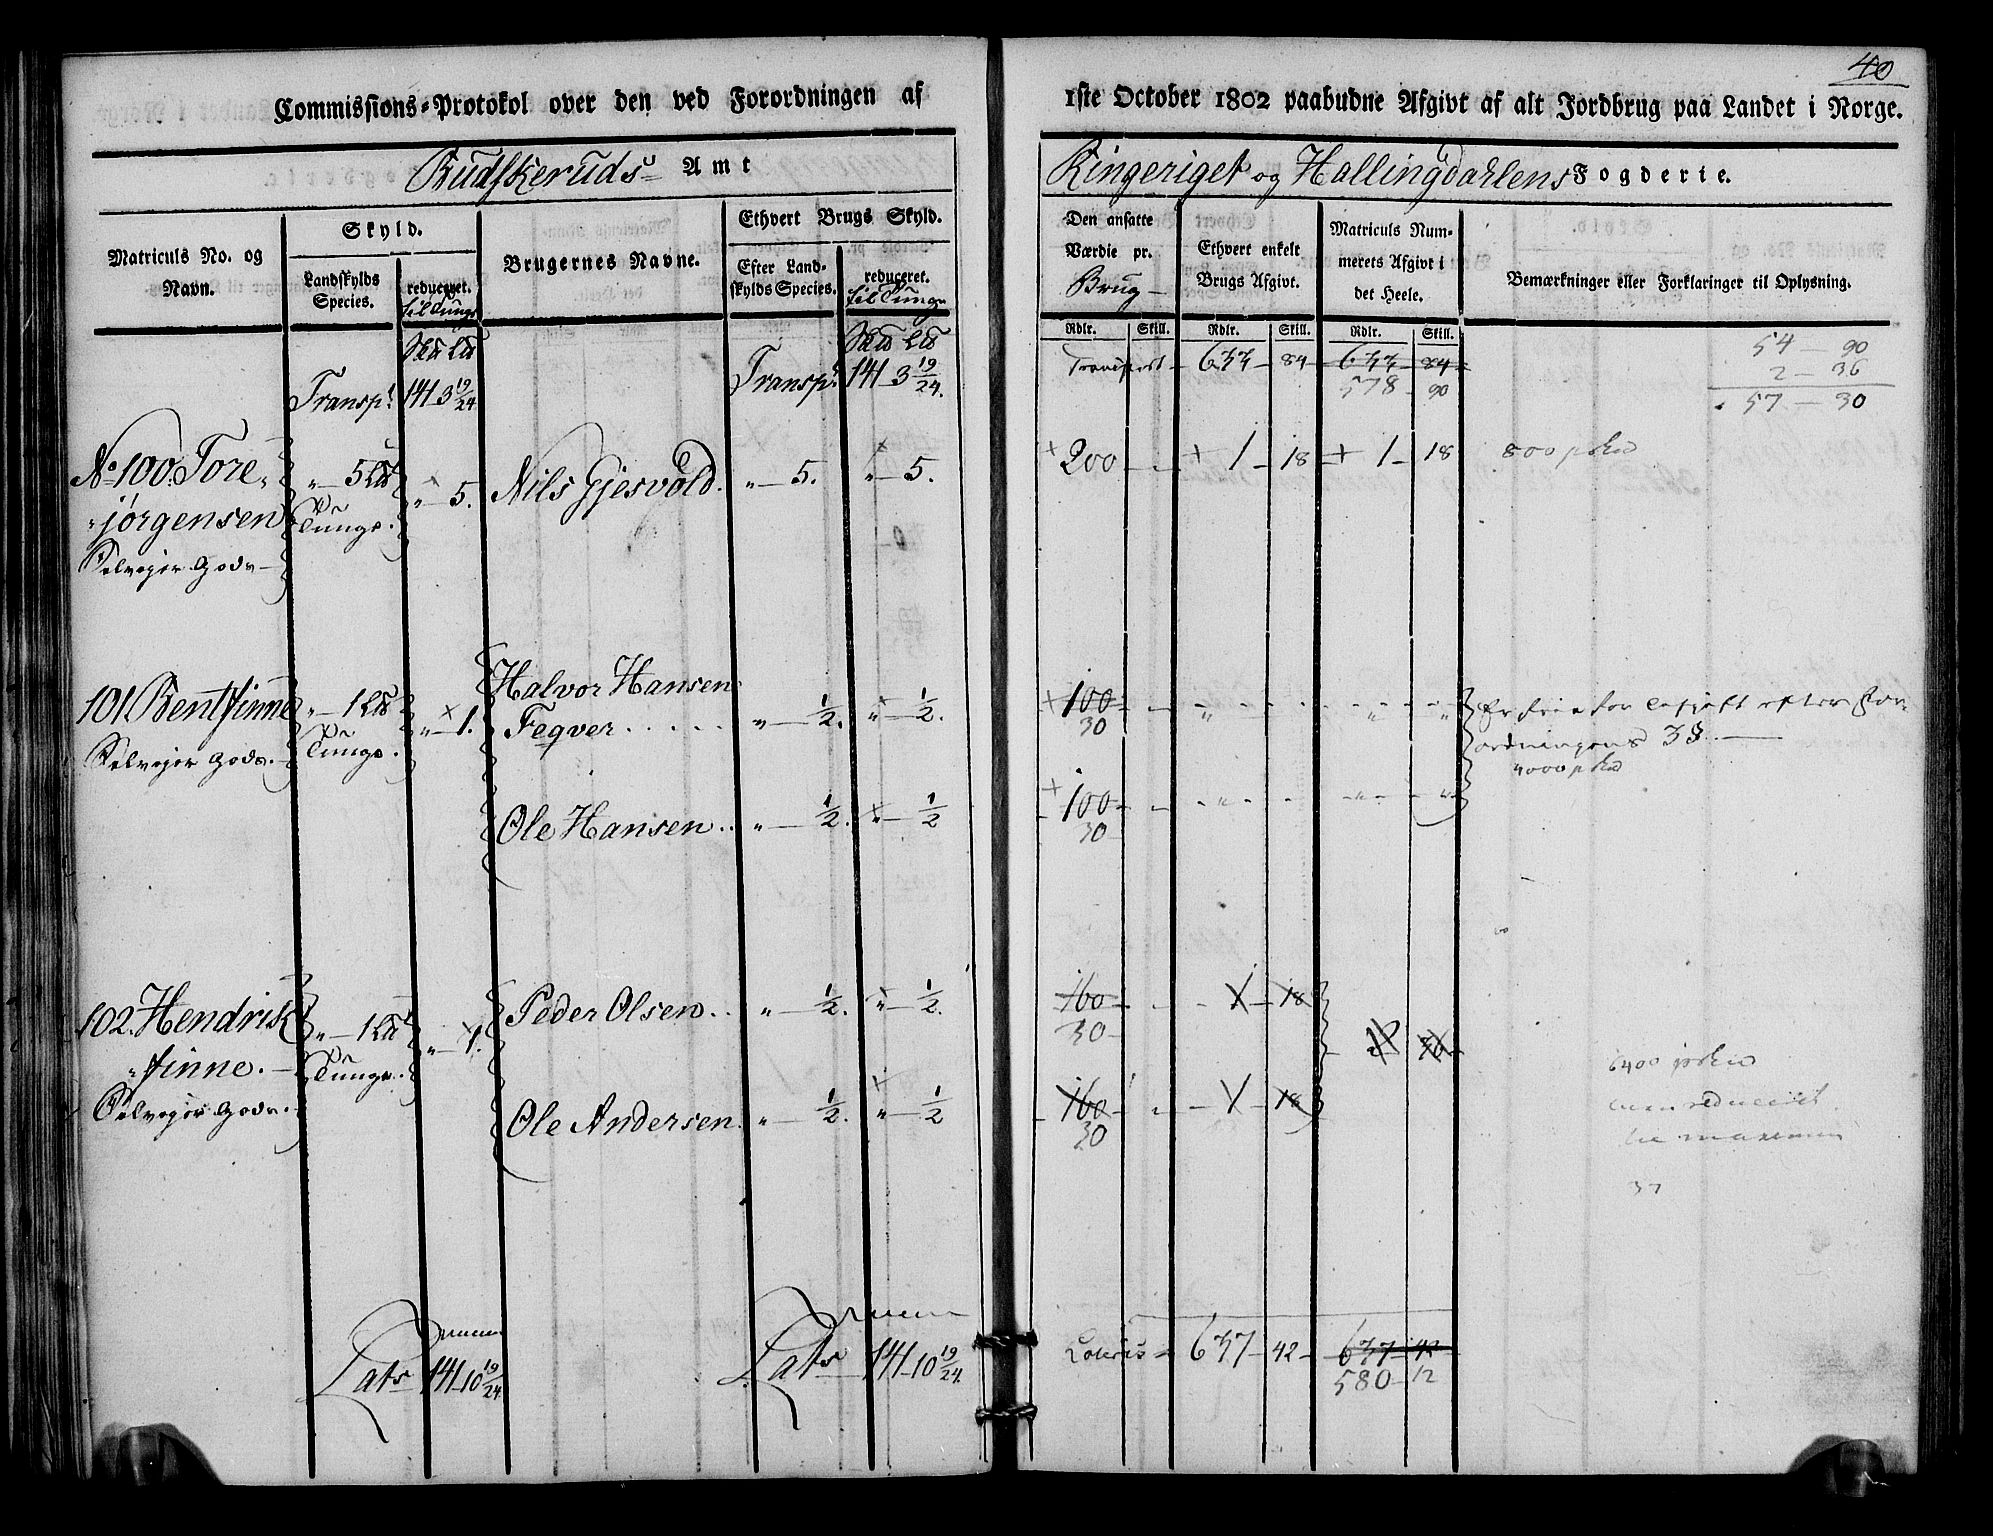 40
Commissions-Protokol over den ved Forordningen af 1ste October 1802 paabudne Afgivt af alt Jordbrug paa Landet i Norge.
Budskeruds Amt
Ringeriget og Hallingdahlens Fogderie.
Matriculs No. og Navn.
Skyld.
Landskylds Species.
reduceret.
til Tunge
Brugernes Navne.
Ethvert Brugs Skyld.
Efter Landskylds Species.
reduceret.
til Tunge
Den ansatte Værdie pr. Brug
Ethvert enkelt Brugs Afgivt.
Matriculs Nummerets Afgivt i det Heele.
Bemærkninger eller Forklaringer til Oplysning.
Rdlr. Skill. Rdlr. Skill. Rdlr. Skill.
Transpt. 141 3 19/24
Transpt. 141 3 19/24.
Transport 633 84 633 84
578 90
54 90
2 36
57 30
No 100. Tore
jörgensen
Selvejer Gods
5 Ld
Tunge.
5.
Nils Gjesvold. 5. 5.
200 1 18 1 18 800 p
101 Bentfinne
Selvejer Gods.
1 Ld
Tunge.
1.
Halvor Hansen
Feqver ..... 1/2. 1/2.
100
30
ordningens 3 §
4000 p
Ole Hansen .. 1/2. 1/2
100
30
102. Hendrik
finne.
Selvejer Gods.
1 Ld
Tunge.
1.
Peder Olsen .. 1/2. 1/2.
160 1 18
30
2 36
Ole Andersen. 1/2. 1/2
160 1 18
30
6400 p
reduceret
37
Lats 141 10 19/24
Lats 141 10 19/24.
Lateris 637 42 637 42
580 12